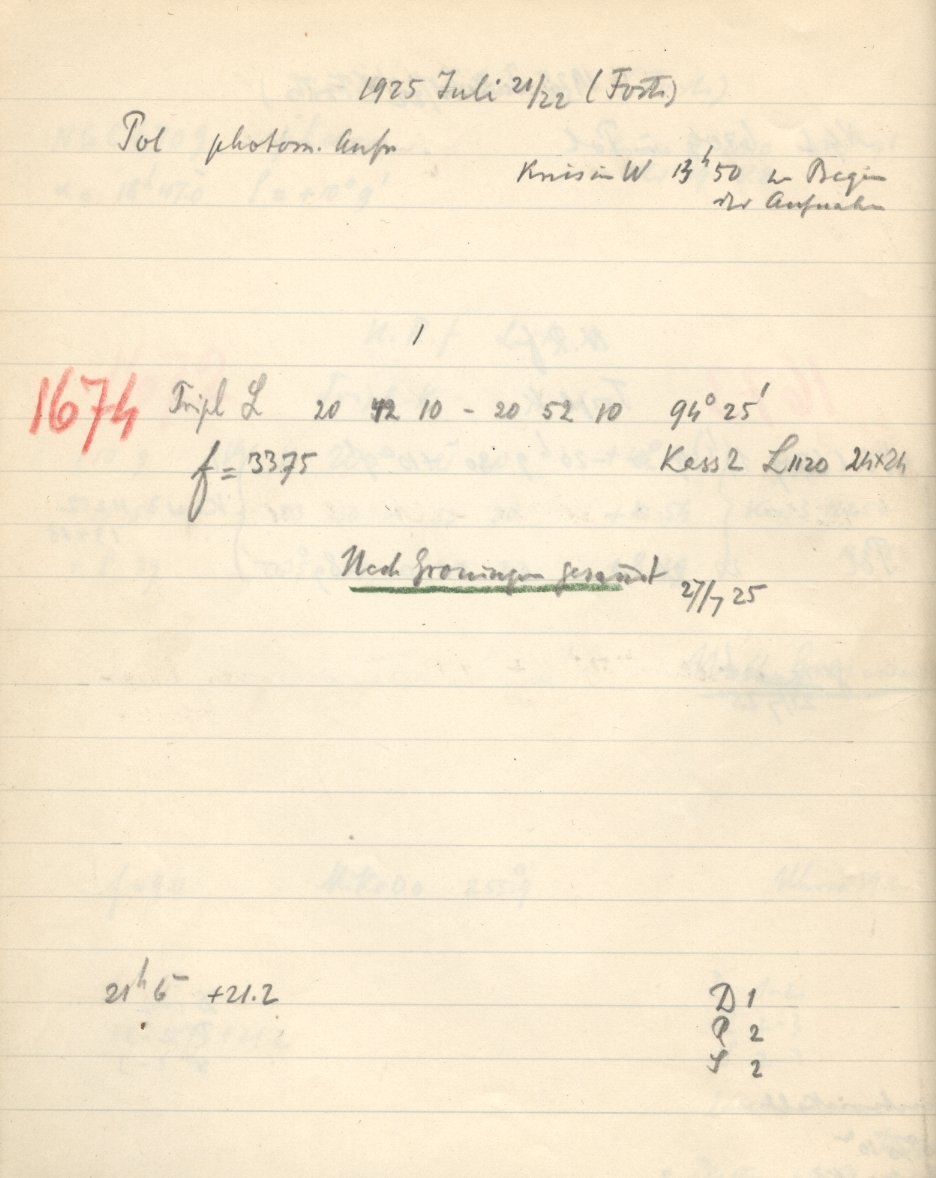 1925 Juli 21/22 (Forts.)
Pol photom. Aufn
Kreis in W 13h 50 zu Begin
der Aufnahm
1
1674 Tripl L 20 42 10 - 20 52 10 94° 25'
f = 3375 Kass 2 L 1120 24×24
Nach Groningen gesandt 27/7 25
21h 6m +21.2 D 1
P 2
S 2